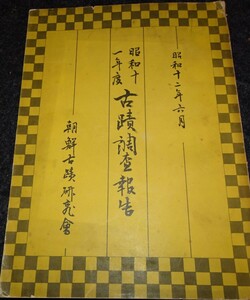 昭和十二年六月
昭和十一年度
古蹟調査報告
朝鮮古蹟研究會